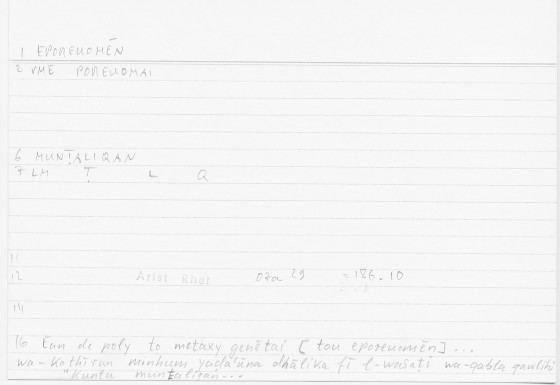 1 EPOREUOMĒN
2 VME POREUOMAI
6 MUNṬALIQAN
LM Ṭ L Q
11
12 Arist Rhet 07a 29 = 186.10
14
16 Ean de poly to metaxy genētai [ tou eporeuomēn] ...
wa-Kathīrun minhum yada'ūna dhālika fī l-wasaṭi wa-qabla qaulihi
"Kuntu munṭaliqan...